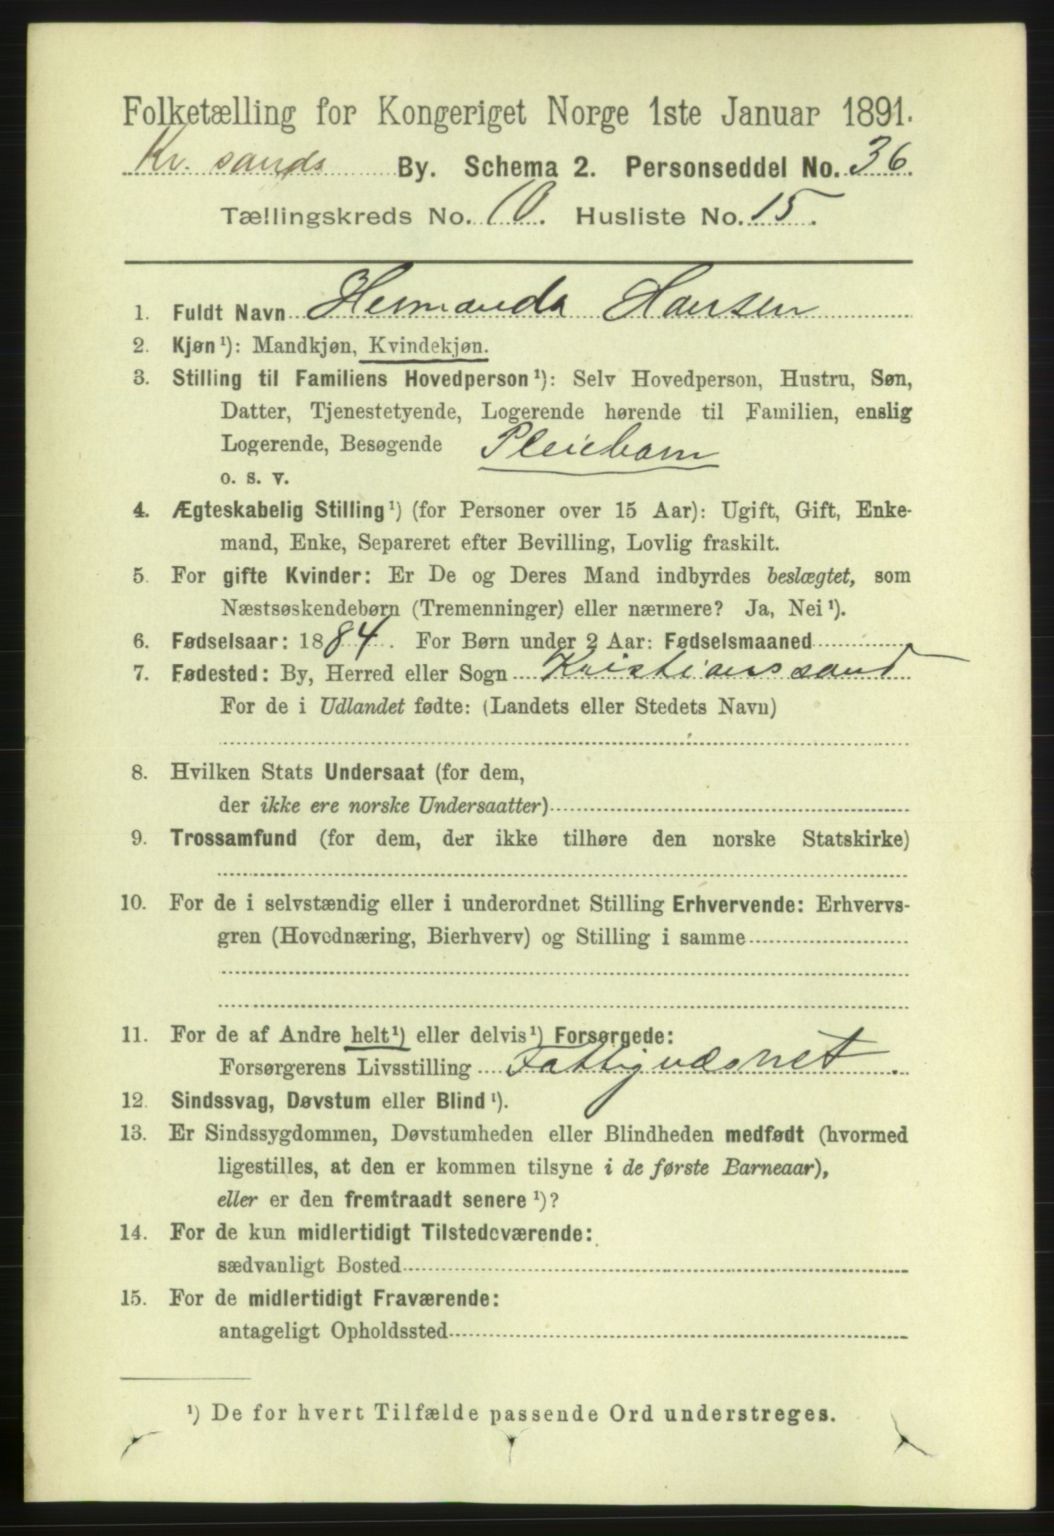 Folketælling for Kongeriget Norge 1ste Januar 1891.
Kr. sands By. Schema 2. Personseddel No. 36
Tællingskreds No. 10. Husliste No. 15.
1. Fuldt Navn Hermanda Hansen
2. Kjøn¹): Mandkjøn, Kvindekjøn.
3. Stilling til Familiens Hovedperson¹): Selv Hovedperson, Hustru, Søn,
Datter, Tjenestetyende, Logerende hørende til Familien, enslig
Logerende, Besøgende Pleiebarn
o. s. v.
4. Ægteskabelig Stilling¹) (for Personer over 15 Aar): Ugift, Gift, Enke-
mand, Enke, Separeret efter Bevilling, Lovlig fraskilt.
5. For gifte Kvinder: Er De og Deres Mand indbyrdes beslægtet, som
Næstsøskendebørn (Tremenninger) eller nærmere? Ja, Nei¹).
6. Fødselsaar: 1884. For Børn under 2 Aar: Fødselsmaaned
7. Fødested: By, Herred eller Sogn Kristianssand
For de i Udlandet fødte: (Landets eller Stedets Navn)
8. Hvilken Stats Undersaat (for dem,
der ikke ere norske Undersaatter)
9. Trossamfund (for dem, der ikke tilhøre den norske Statskirke)
10. For de i selvstændig eller i underordnet Stilling Erhvervende: Erhvervs-
gren (Hovednæring, Bierhverv) og Stilling i samme
11. For de af Andre helt¹) eller delvis¹) Forsørgede:
Forsørgerens Livsstilling Fattigvæsnet.
12. Sindssvag, Døvstum eller Blind¹).
13. Er Sindssygdommen, Døvstumheden eller Blindheden medfødt (hvormed
ligestilles, at den er kommen tilsyne i de første Barneaar),
eller er den fremtraadt senere¹)?
14. For de kun midlertidigt Tilstedeværende:
sædvanligt Bosted
15. For de midlertidigt Fraværende:
antageligt Opholdssted
¹) De for hvert Tilfælde passende Ord understreges.